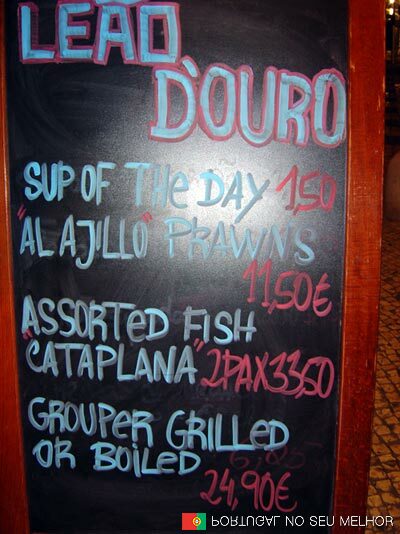 LEÃO
D'OURO
SUP OF THE DAY 1,50
"AL AJILLO" PRAWNS
11,50€
ASSORTED FISH
"CATAPLANA" 2PAX33,50
GROUPER GRILLED
OR BOILED
24,90€
PORTUGAL NO SEU MELHOR